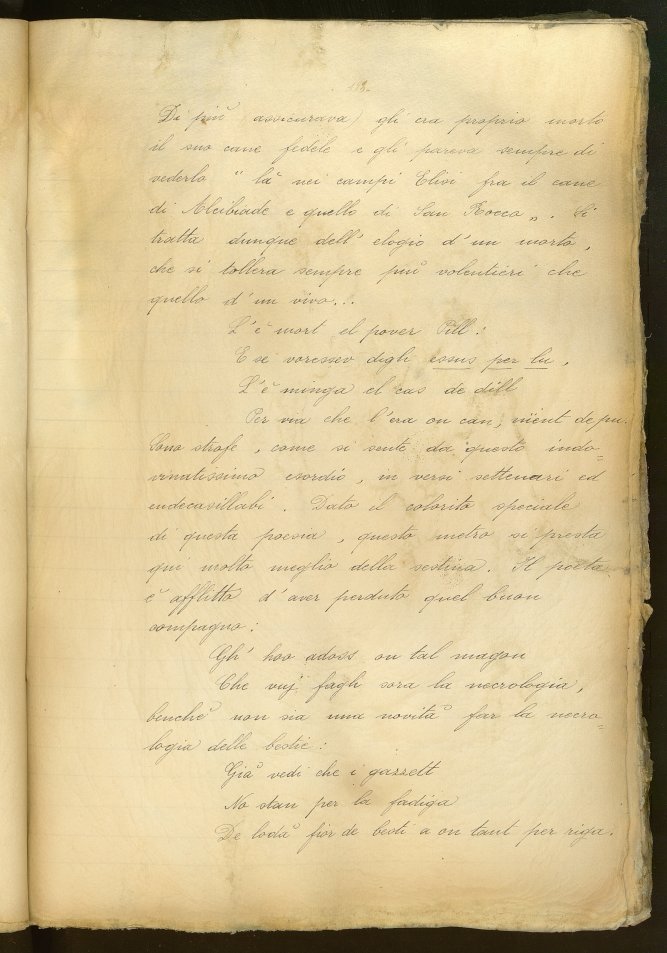 Di più (assicurava) gli era proprio morto
il suo cane fedele e gli pareva sempre di
vederlo " là nei campi Elisi fra il cane
di Alcibiade e quello di San Rocco ". Si
tratta dunque dell' elogio d'un morto,
che si tollera sempre più volentieri che
quello d'un vivo...
L'è mort el pover Pill:
E se voressev digh essus per lu,
L'è minga el cas de dill
Per via che l'era on can, nient de pu.
Sono strofe, come si sente da questo indo-
vinatissimo esordio, in versi settenari ed
endecasillabi. Dato il colorito speciale
di questa poesia, questo metro si presta
qui molto meglio della sestina. Il poeta
è afflitto d'aver perduto quel buon
compagno:
Gh' hoo adoss on tal magon
Che vuj fagh sora la necrologia,
benchè non sia una novità far la necro-
logia delle bestie:
Già vedi che i gazzett
No stan per la fadiga
De lodà fior de besti a on tant per riga.